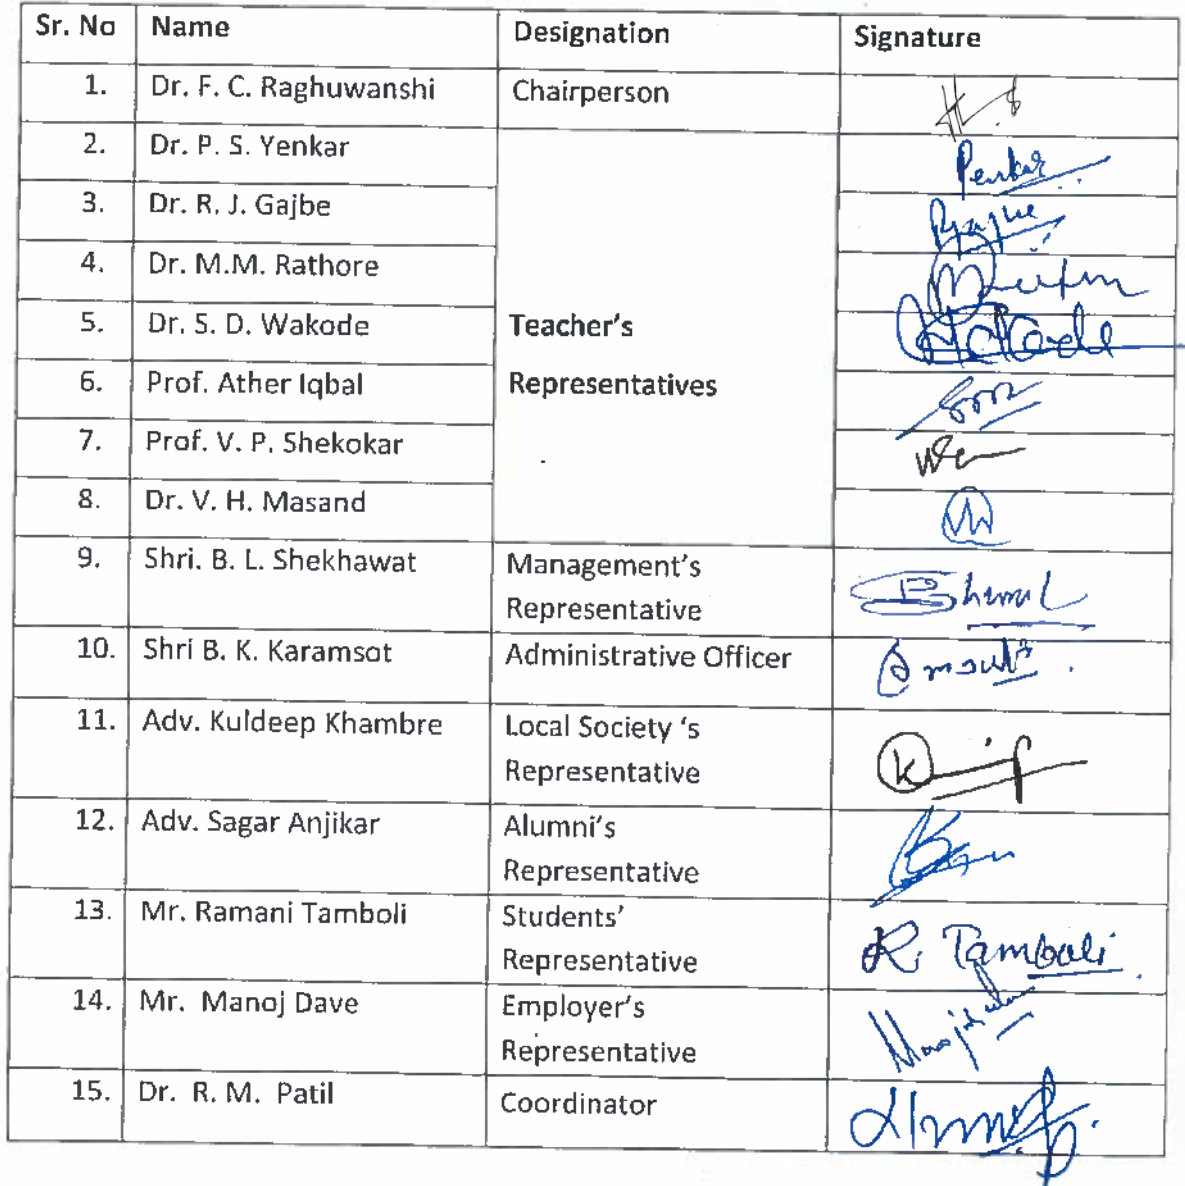 Sr. No Name Designation Signature
1. Dr. F. C. Raghuwanshi Chairperson
2. Dr. P. S. Yenkar Penkar
3. Dr. R. J. Gajbe
4. Dr. M.M. Rathore
5. Dr. S. D. Wakode Teacher's
6. Prof. Ather Iqbal Representatives
7. Prof. V. P. Shekokar
8. Dr. V. H. Masand
9. Shri. B. L. Shekhawat Management's
Representative
10. Shri B. K. Karamsot Administrative Officer
11. Adv. Kuldeep Khambre Local Society 's
Representative
12. Adv. Sagar Anjikar Alumni's
Representative
13. Mr. Ramani Tamboli Students' R. Tamboli
Representative
14. Mr. Manoj Dave Employer's
Representative
15. Dr. R. M. Patil Coordinator